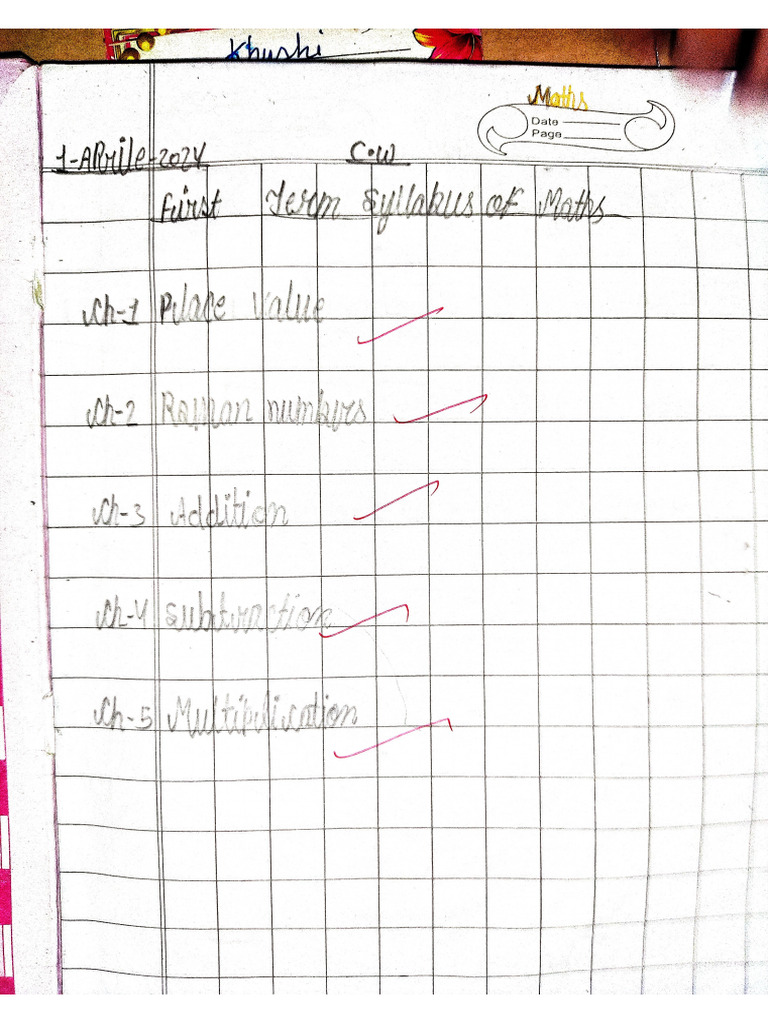 Khushi
Maths
Date
Page
1-APrile-2024 C.W
First Term Syllabus of Maths
Ch-1 Place Value
Ch-2 Roman numbers
Ch-3 Addition
Ch-4 Subtraction
Ch-5 Multiplication